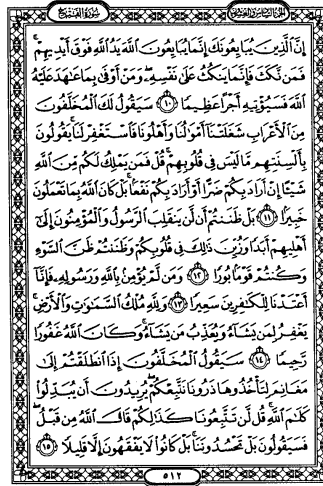 الجزء السادس والعشرون سورة الفتح
إِنَّ ٱلَّذِينَ يُبَايِعُونَكَ إِنَّمَا يُبَايِعُونَ ٱللَّهَ يَدُ ٱللَّهِ فَوْقَ أَيْدِيهِمْ ۚ
فَمَن نَّكَثَ فَإِنَّمَا يَنكُثُ عَلَىٰ نَفْسِهِۦ ۖ وَمَنْ أَوْفَىٰ بِمَا عَٰهَدَ عَلَيْهُ
ٱللَّهَ فَسَيُؤْتِيهِ أَجْرًا عَظِيمًا ١٠ سَيَقُولُ لَكَ ٱلْمُخَلَّفُونَ
مِنَ ٱلْأَعْرَابِ شَغَلَتْنَآ أَمْوَٰلُنَا وَأَهْلُونَا فَٱسْتَغْفِرْ لَنَا ۚ يَقُولُونَ
بِأَلْسِنَتِهِم مَّا لَيْسَ فِى قُلُوبِهِمْ ۚ قُلْ فَمَن يَمْلِكُ لَكُم مِّنَ ٱللَّهِ
شَيْـًٔا إِنْ أَرَادَ بِكُمْ ضَرًّا أَوْ أَرَادَ بِكُمْ نَفْعًۢا ۚ بَلْ كَانَ ٱللَّهُ بِمَا تَعْمَلُونَ
خَبِيرًۢا ١١ بَلْ ظَنَنتُمْ أَن لَّن يَنقَلِبَ ٱلرَّسُولُ وَٱلْمُؤْمِنُونَ إِلَىٰٓ
أَهْلِيهِمْ أَبَدًا وَزُيِّنَ ذَٰلِكَ فِى قُلُوبِكُمْ وَظَنَنتُمْ ظَنَّ ٱلسَّوْءِ
وَكُنتُمْ قَوْمًۢا بُورًا ١٢ وَمَن لَّمْ يُؤْمِنۢ بِٱللَّهِ وَرَسُولِهِۦ فَإِنَّآ
أَعْتَدْنَا لِلْكَٰفِرِينَ سَعِيرًا ١٣ وَلِلَّهِ مُلْكُ ٱلسَّمَٰوَٰتِ وَٱلْأَرْضِ ۚ
يَغْفِرُ لِمَن يَشَآءُ وَيُعَذِّبُ مَن يَشَآءُ ۚ وَكَانَ ٱللَّهُ غَفُورًا
رَّحِيمًا ١٤ سَيَقُولُ ٱلْمُخَلَّفُونَ إِذَا ٱنطَلَقْتُمْ إِلَىٰ
مَغَانِمَ لِتَأْخُذُوهَا ذَرُونَا نَتَّبِعْكُمْ ۖ يُرِيدُونَ أَن يُبَدِّلُوا۟
كَلَٰمَ ٱللَّهِ ۚ قُل لَّن تَتَّبِعُونَا كَذَٰلِكُمْ قَالَ ٱللَّهُ مِن قَبْلُ ۖ
فَسَيَقُولُونَ بَلْ تَحْسُدُونَنَا ۚ بَلْ كَانُوا۟ لَا يَفْقَهُونَ إِلَّا قَلِيلًا ١٥
٥١٢